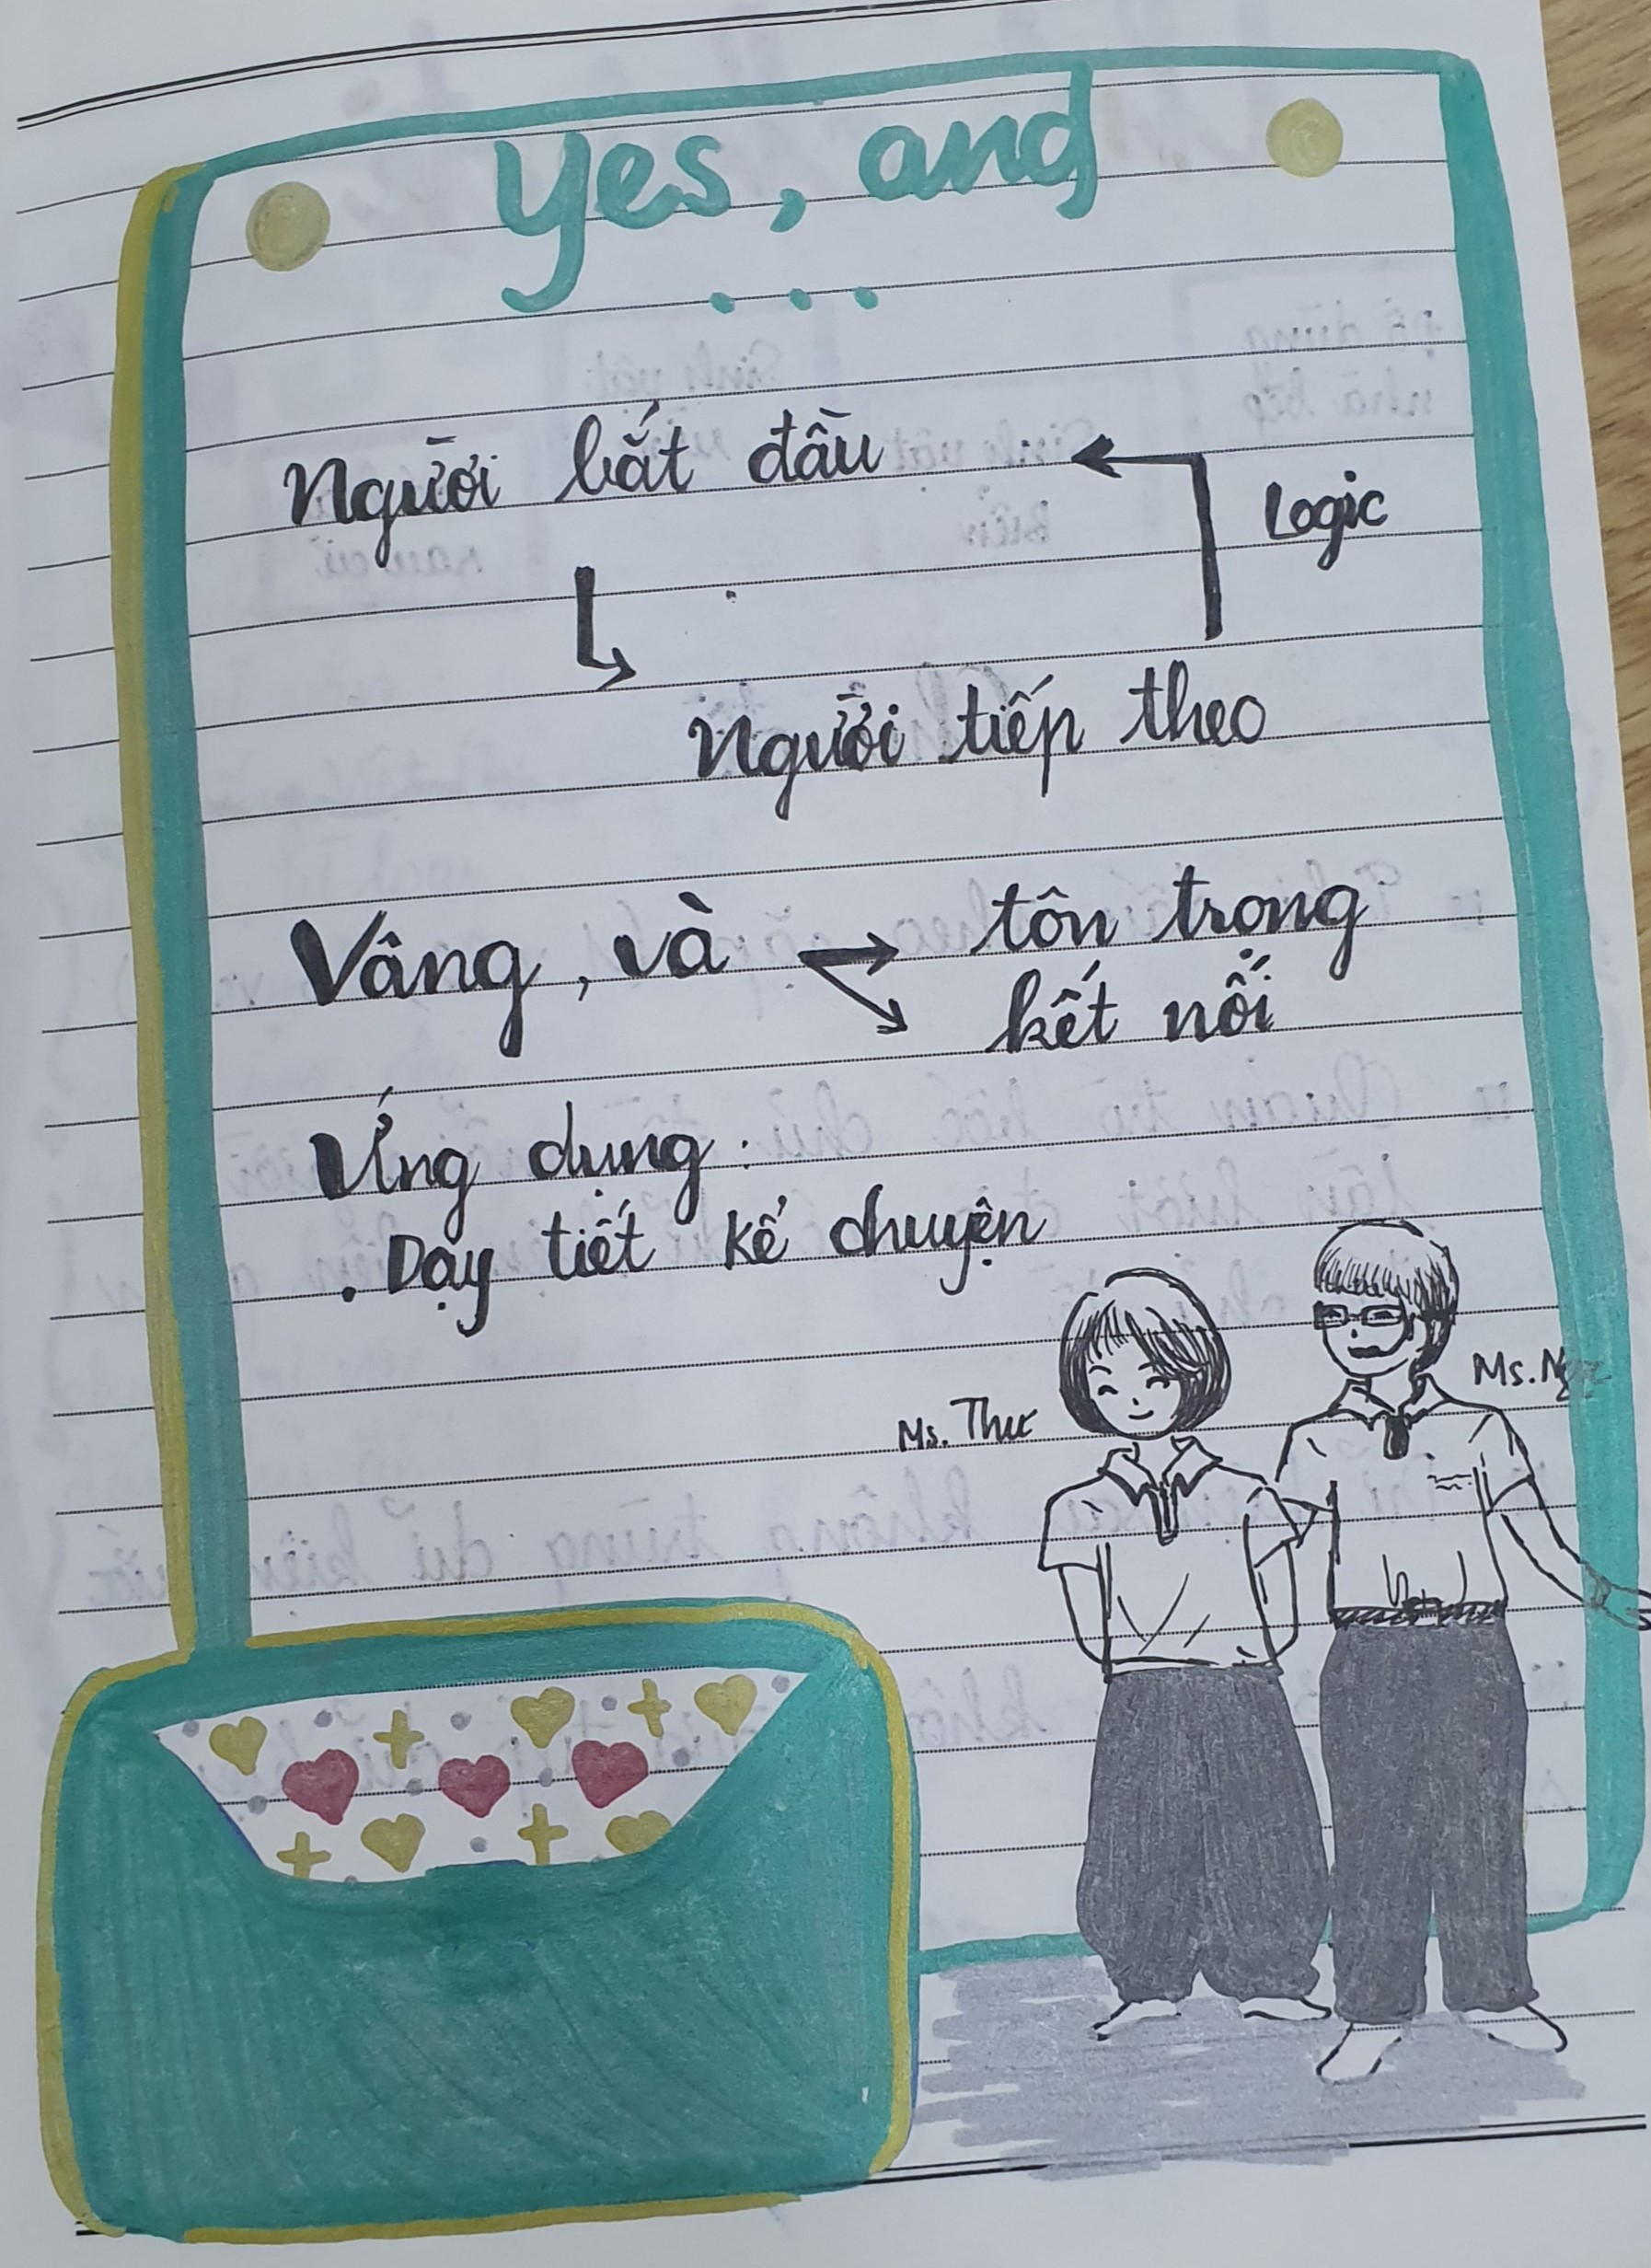 Yes, and
...
Người bắt đầu
Logic
Người tiếp theo
Vâng, và → tôn trọng
kết nối
Ứng dụng:
. Dạy tiết kể chuyện
Ms. Thư
Ms.